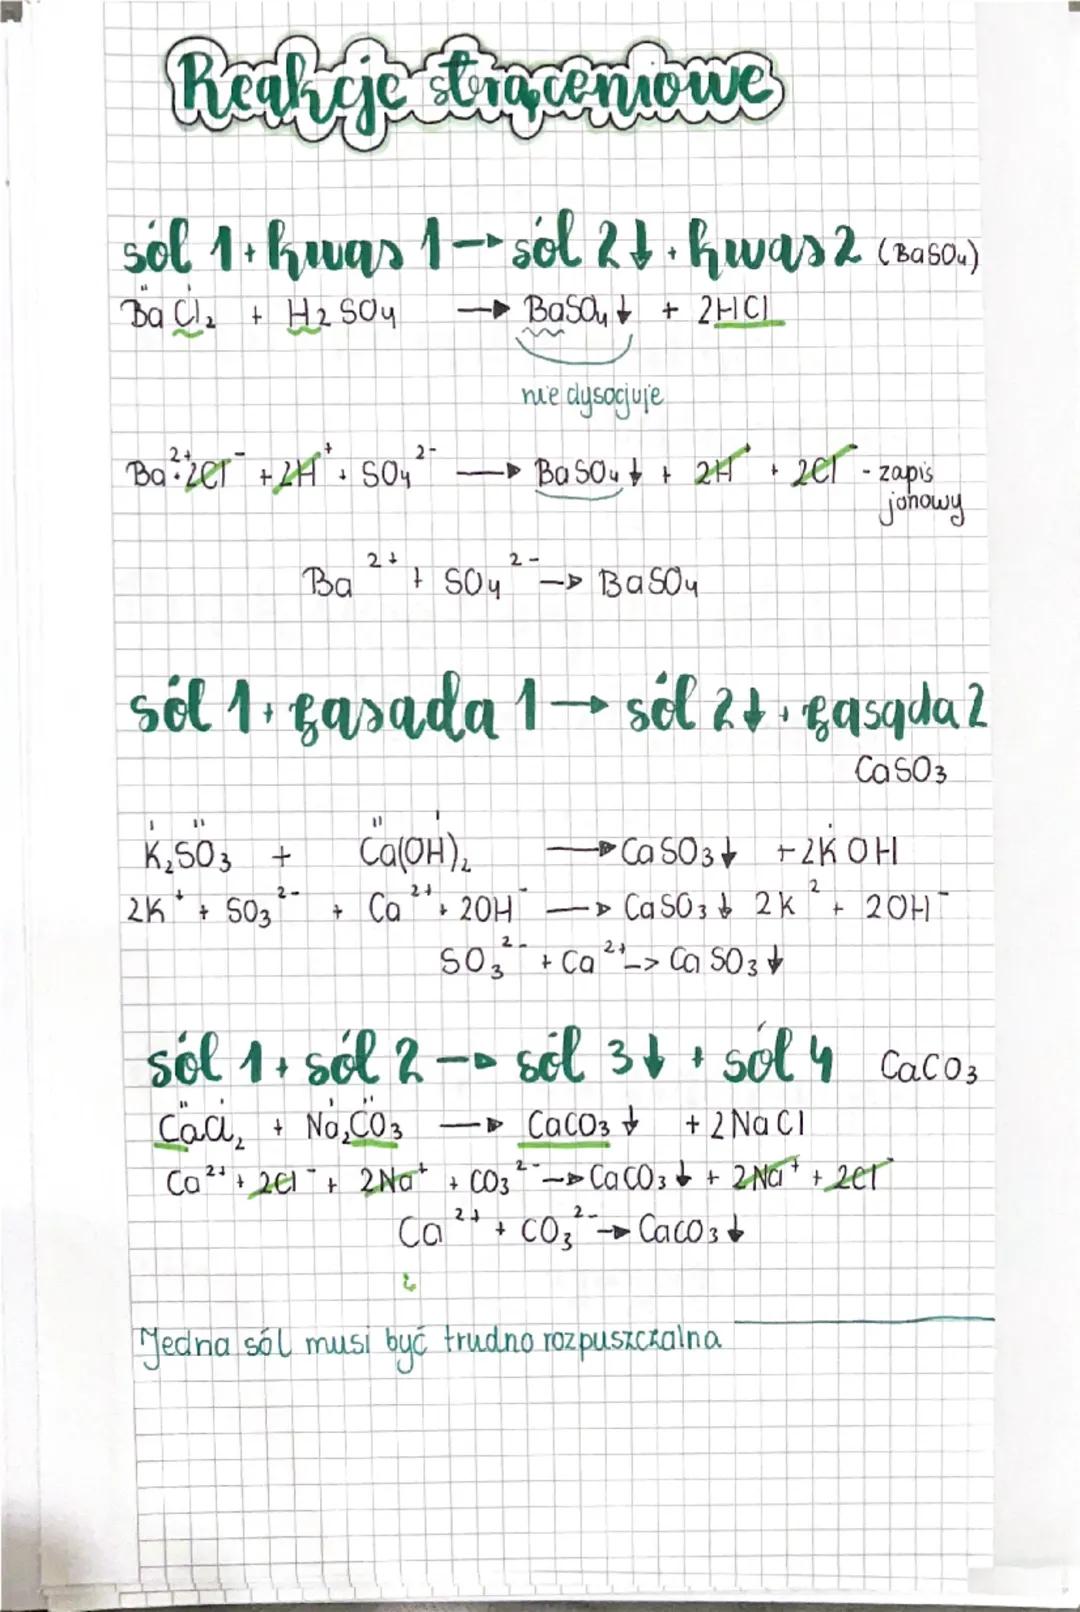 Reakcje strąceniowe
sól 1 + kwas 1 → sól 2↓ + kwas 2 (BaSO₄)
BaCl₂ + H₂SO₄ → BaSO₄↓ + 2HCl
nie dysocjuje
Ba²⁺ + 2Cl⁻ + 2H⁺ + SO₄²⁻ → BaSO₄↓ + 2H⁺ + 2Cl⁻ - zapis
jonowy
Ba²⁺ + SO₄²⁻ → BaSO₄
sól 1 + zasada 1 → sól 2↓ + zasada 2
CaSO₃
K₂SO₃ + Ca(OH)₂ → CaSO₃↓ + 2KOH
2K⁺ + SO₃²⁻ + Ca²⁺ + 2OH⁻ → CaSO₃↓ 2K² + 2OH⁻
SO₃²⁻ + Ca²⁺ -> CaSO₃↓
sól 1 + sól 2 → sól 3↓ + sól 4 CaCO₃
CaCl₂ + Na₂CO₃ → CaCO₃↓ + 2NaCl
Ca²⁺ + 2Cl⁻ + 2Na⁺ + CO₃²⁻ → CaCO₃↓ + 2Na⁺ + 2Cl⁻
Ca²⁺ + CO₃²⁻ → CaCO₃↓
Jedna sól musi być trudno rozpuszczalna